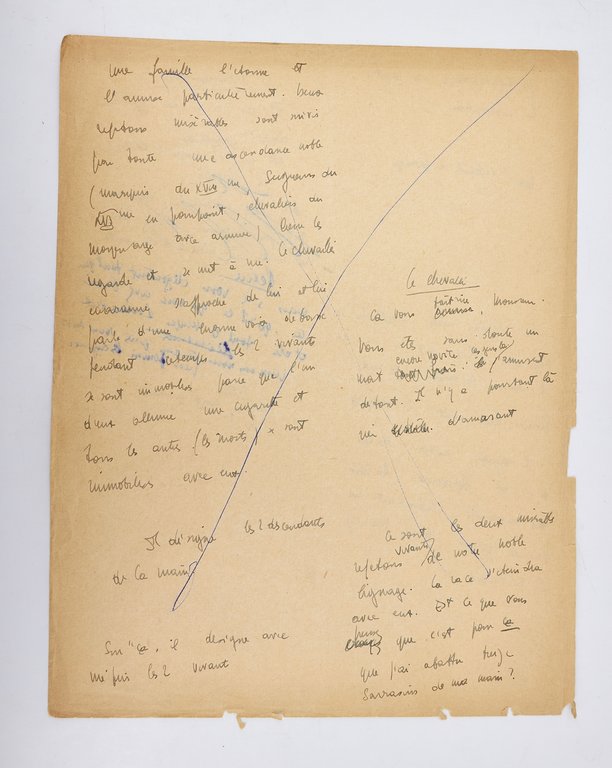 Une famille l'étonne et
l'amuse particulièrement. Deux
rejetons misérables sont suivis
par toute une descendance noble
(marquis du XVIII me, Seigneurs du
XVI me en pourpoint, chevaliers du
moyen age avec armure)
regarde et se met à rire. Le chevalier
cuirassé s'approche de lui et lui
parle d'une énorme voix de basse
pendant ce temps les 2 vivants
se sont immobilisés parce que l'un
d'eux allume une cigarette et
tous les autres (les morts) se sont
immobilisés avec eux.
Il désigne les 2 descendants
de la main
Sur "ça", il désigne avec
mépris les 2 vivants
Le chevalier
fait rire
Ça vous, Monsieur.
Vous êtes sans doute un
encore novice.
mort. s'amusent
de tout. Il n'y a pourtant là
rien d'amusant
Ce sont les deux misérables
vivants
rejetons de notre noble
lignage. La race s'éteindra
avec eux. Est ce que vous
pensez que c'est pour ça
que j'ai abattu treize
Sarrasins de ma main ?